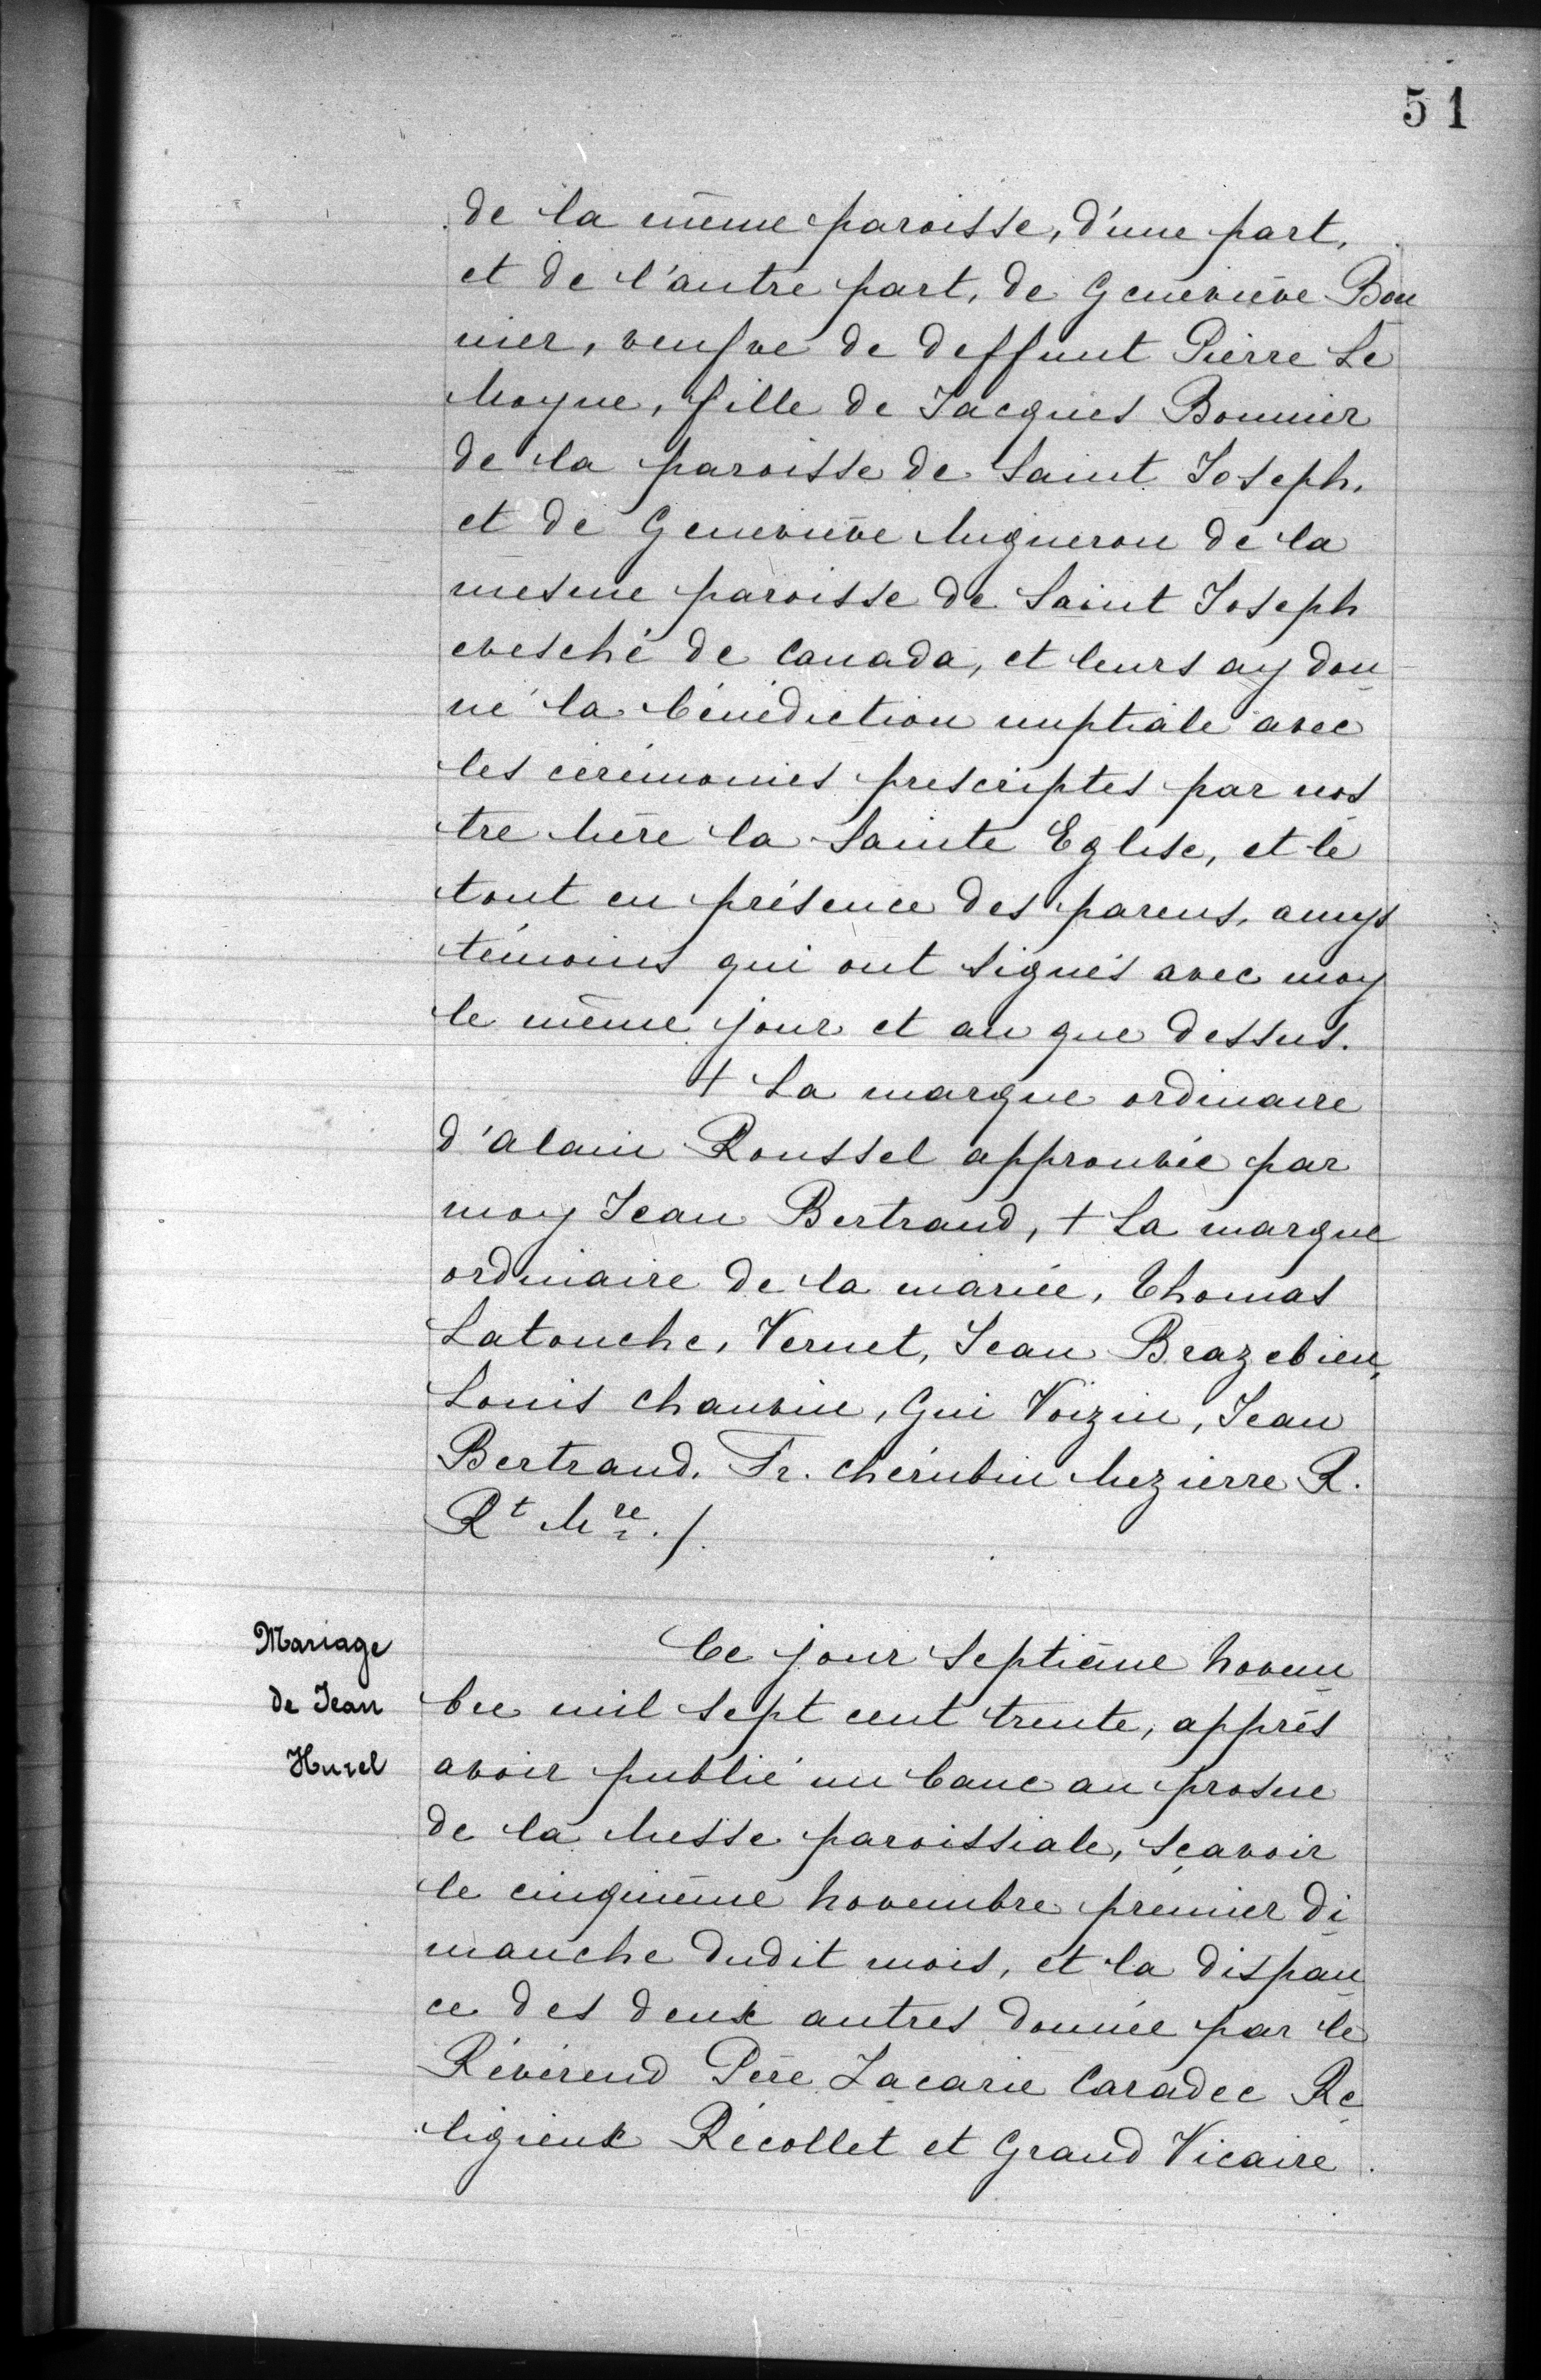 51
de la même paroisse, d'une part,
et de l'autre part, de Geneviève Bon
nier, veufve de deffunt Pierre Le
Moyne, fille de Jacques Bonnier
de la paroisse de Saint Joseph,
et de Geneviève Migneron de la
mesme paroisse de Saint Joseph
evesché de Canada, et leurs ay don
né la bénédiction nuptiale avec
les cérémonies prescriptes par nos
tre Mère la Sainte Eglise, et le
tout en présence des parens, amys
témoins qui ont signés avec moy
le même jour et an que dessus.
+ La marque ordinaire
d'Alain Roussel approuvée par
moy Jean Bertrand, + La marque
ordinaire de la mariée, Thomas
Latouche, Vernet, Jean Brazebien,
Louis Chauvin, Gui Voizin, Jean
Bertrand. Fr. Chérubin Mezierre R.
Rt Mre ./.
Mariage
de Jean
Hurel
Ce jour septième Novem
bre mil sept cent trente, apprés
avoir publié un banc au prosne
de la Messe paroissiale, sçavoir
le cinquième Novembre premier di
manche dudit mois, et la dispan
ce des deux autres donnée par le
Révérend Père Zacarie Caradec Re
ligieux Récollet et Grand Vicaire